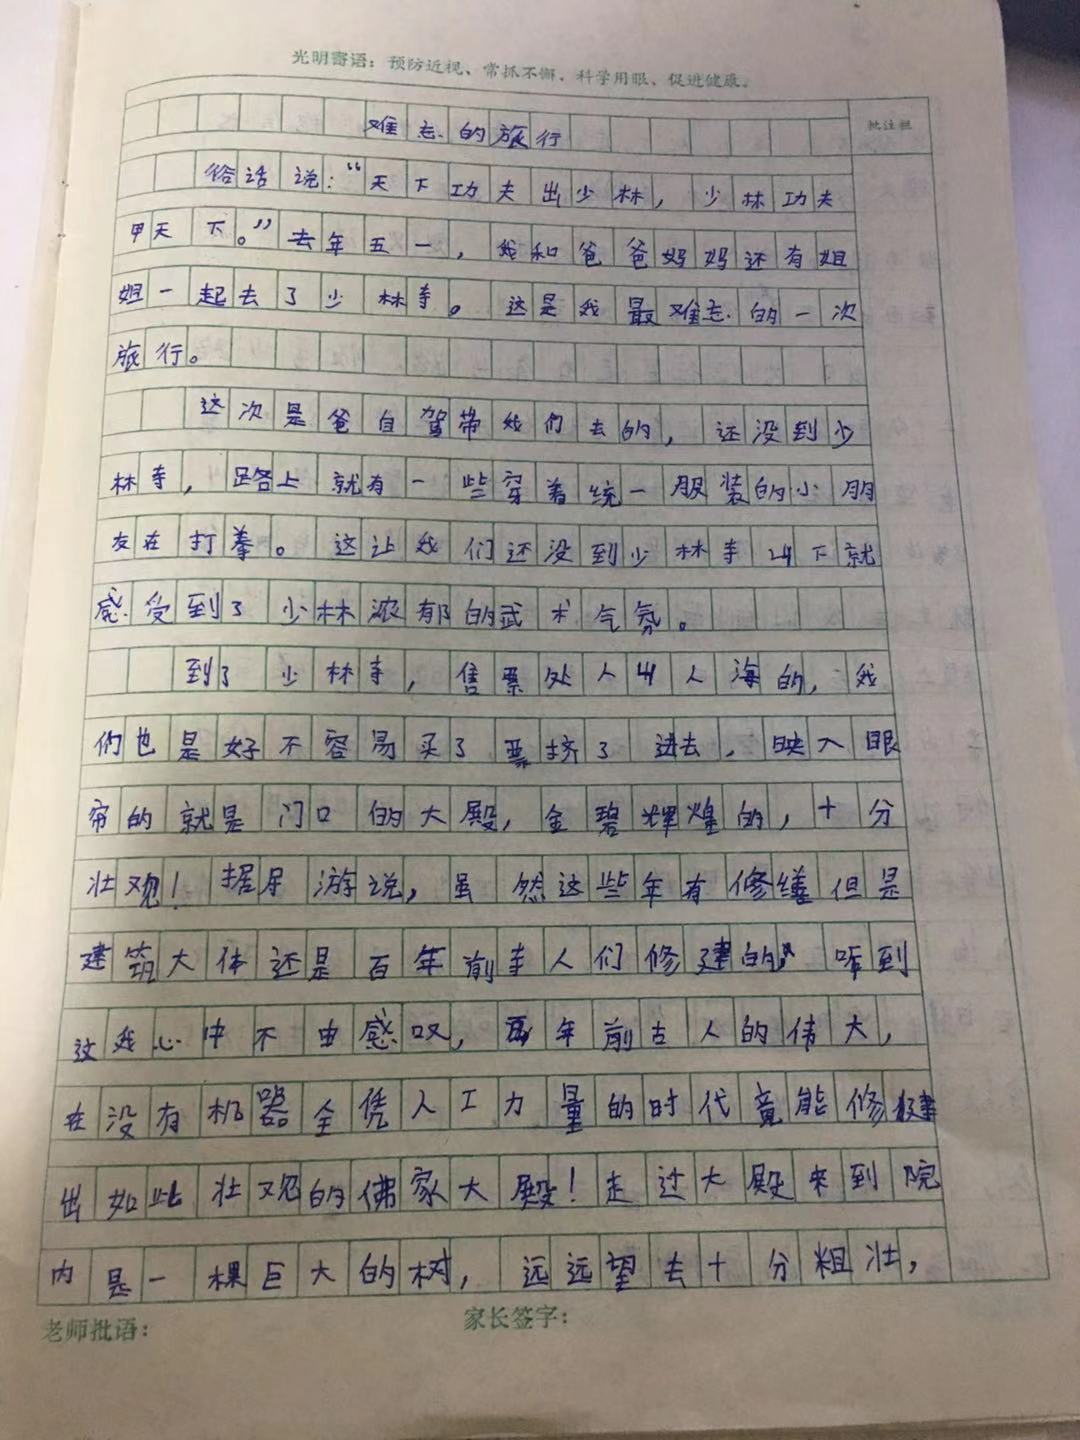 光明寄语：预防近视、常抓不懈、科学用眼、促进健康。
批注栏
难忘的旅行
俗话说：“天下功夫出少林，少林功夫
甲天下。”去年五一，我和爸爸妈妈还有姐
姐一起去了少林寺。这是我最难忘的一次
旅行。
这次是爸自驾带我们去的，还没到少
林寺，路上就有一些穿着统一服装的小朋
友在打拳。这让我们还没到少林寺山下就
感受到了少林浓郁的武术气氛。
到了少林寺，售票处人山人海的，我
们也是好不容易买了票挤了进去，映入眼
帘的就是门口的大殿，金碧辉煌的，十分
壮观！据导游说，虽然这些年有修缮但是
建筑大体还是百年前寺人们修建的，听到
这我心中不由感叹，百年前古人的伟大，
在没有机器全凭人工力量的时代竟能修建
出如此壮观的佛家大殿！走过大殿来到院
内是一棵巨大的树，远远望去十分粗壮，
老师批语：
家长签字：